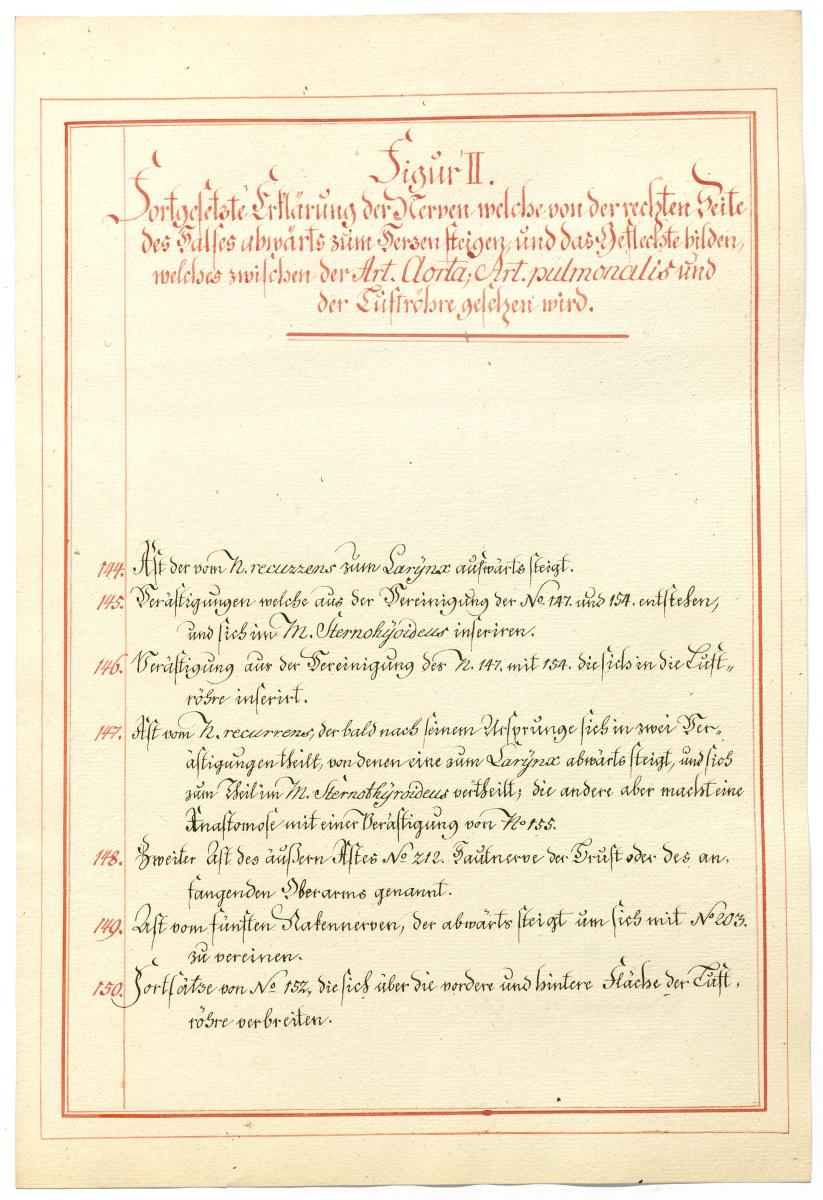 Figur II.
Fortgesetzte Erklärung der Nerven welche von der rechten Seite
des Halses abwärts zum Herzen steigen, und das Geflechte bilden,
welches zwischen der Art. Aorta, Art. pulmonalis und
der Luftröhre gesehen wird.
144. Ast der vom N. recurrens zum Larÿnx aufwärts steigt.
145. Verästigungen welche aus der Vereinigung der No. 147. und 154. entstehen,
und sich im M. Sternohÿoideus inseriren.
146. Verästigung aus der Vereinigung der N. 147. mit 154. die sich in die Luft-
röhre inserirt.
147. Ast vom N. recurrens, der bald nach seinem Ursprunge sich in zwei Ver-
ästigungen theilt, von denen eine zum Larÿnx abwärts steigt, und sich
zum Theil im M. Sternothÿroideus vertheilt; die andere aber macht eine
Anastomose mit einer Verästigung von No 155.
148. Zweiter Ast des äußern Astes No 212. Hautnerve der Brust oder des an-
fangenden Oberarms genannt.
149. Ast vom fünften Nakennerven, der abwärts steigt um sich mit No 203.
zu vereinen.
150. Fortsätze von No 152, die sich über die vordere und hintere Fläche der Luft-
röhre verbreiten.